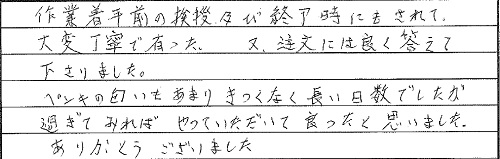 作業着手前の挨拶及び終了時にもされて、
大変丁寧で有った。 又、注文には良く答えて
下さりました。
ペンキの匂いもあまりきつくなく長い日数でしたが
過ぎてみれば やっていただいて良ったと思いました。
ありがとうございました